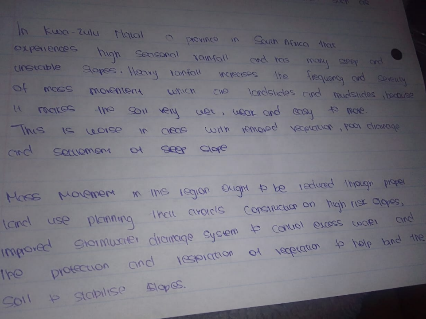 In Kwa-Zulu Natal a province in South Africa that
experiences high seasonal rainfall and has many steep and
unstable slopes. Heavy rainfall increases the frequency and severity
of mass movement which are landslides and mudslides, because
it makes the soil very wet, weak and easy to move.
This is worse in areas with removed vegetation, poor drainage
and settlement of steep slope
Mass Movement in this region ought to be reduced through proper
land use planning that avoids construction on high risk slopes,
improved stormwater drainage system to control excess water and
the protection and restoration of vegetation to help bind the
soil to stabilise slopes.